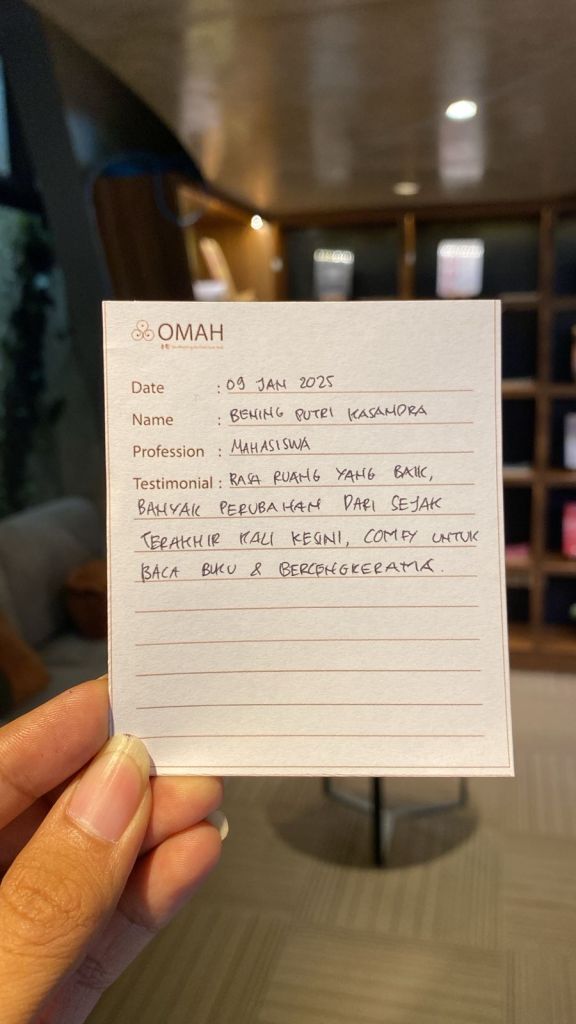 OMAH
Date : 09 JAN 2025
Name : BENING PUTRI KASANDRA
Profession : MAHASISWA
Testimonial : RASA RUANG YANG BAIK,
BANYAK PERUBAHAN DARI SEJAK
TERAKHIR KALI KESINI, COMFY UNTUK
BACA BUKU & BERCENGKERAMA.